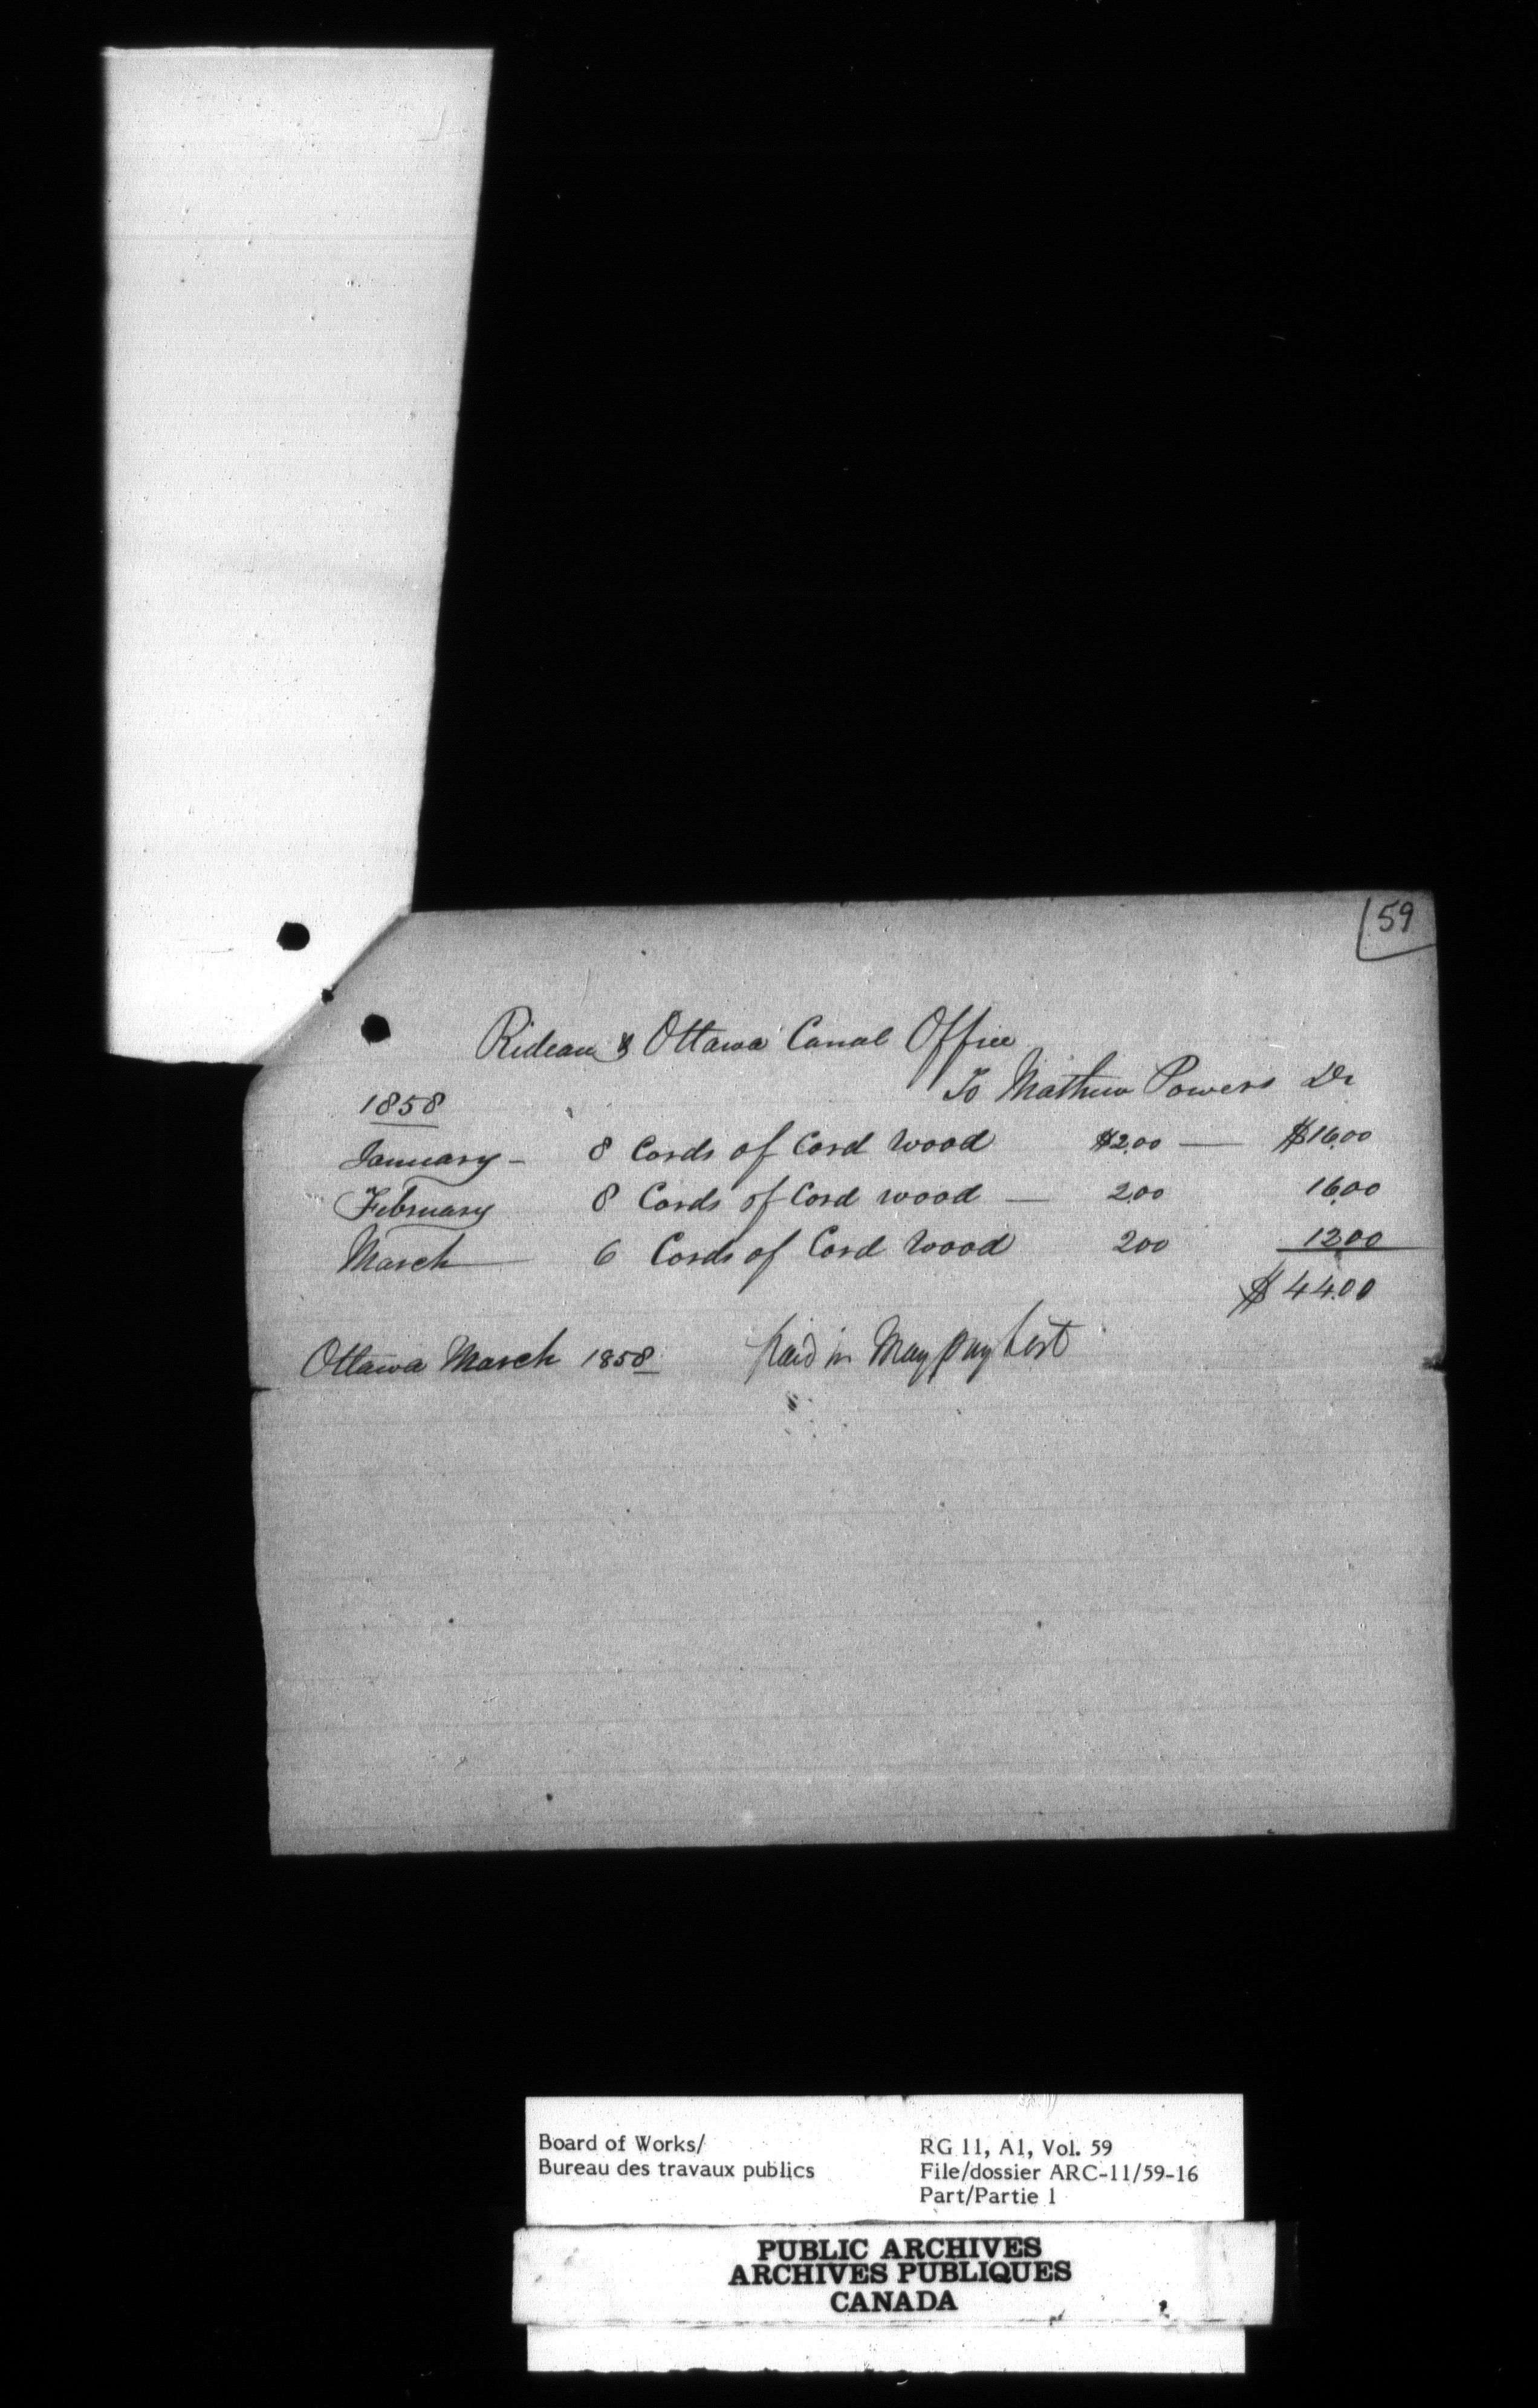 59
Rideau & Ottawa Canal Office
To Mathew Powers Dr
1858
January - 8 Cords of Cord Wood $2.00 — $16.00
February 8 Cords of Cord wood — 2.00 16.00
March — 6 Cords of Cord Wood 200 12.00
$44.00
Ottawa March 1858 Paid in May pay List
Board of Works/
Bureau des travaux publics
RG 11, A1, Vol. 59
File/dossier ARC-11/59-16
Part/Partie 1
PUBLIC ARCHIVES
ARCHIVES PUBLIQUES
CANADA